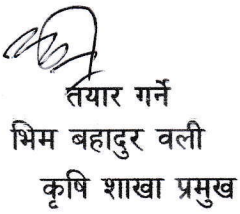 तयार गर्ने
भिम बहादुर वली
कृषि शाखा प्रमुख